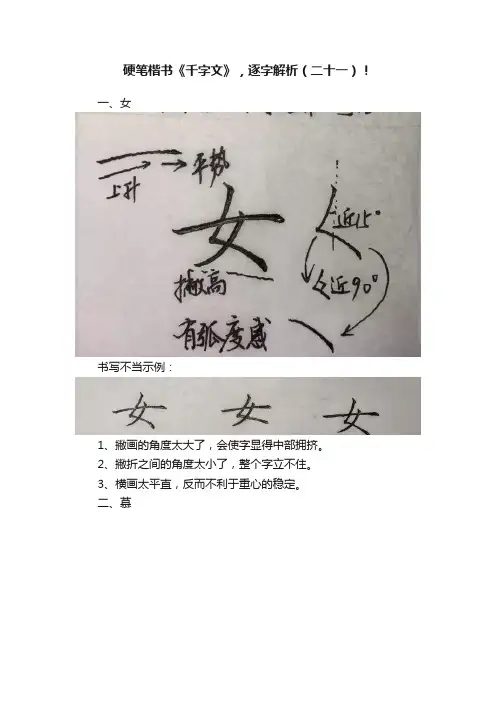 硬笔楷书《千字文》，逐字解析（二十一）！
一、女
平势
上升
女
近15°
撇高
近90°
有弧度感
书写不当示例：
女 女 女
1、撇画的角度太大了，会使字显得中部拥挤。
2、撇折之间的角度太小了，整个字立不住。
3、横画太平直，反而不利于重心的稳定。
二、慕